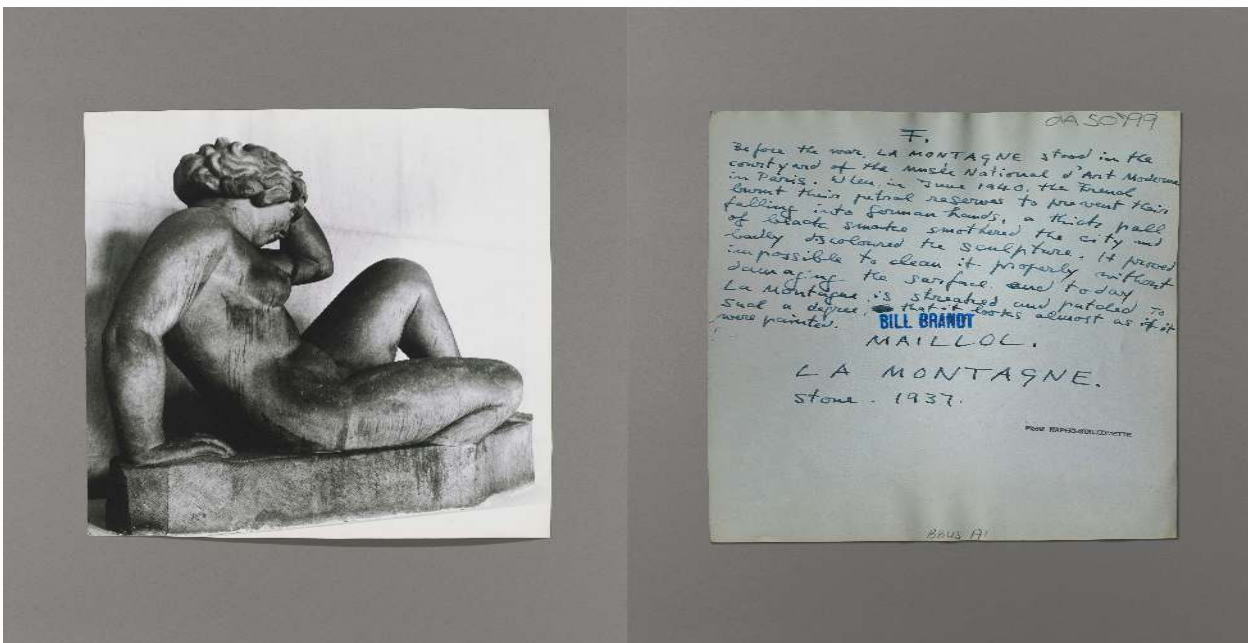 OA50799
F.
Before the war, LA MONTAGNE stood in the
courtyard of the Musée National d'Art Moderne
in Paris. When, in June 1940, the French
burnt their petrol reserves to prevent their
falling into German hands, a thick pall
of black smoke smothered the city and
badly discoloured the sculpture. It proved
impossible to clean it properly without
damaging the surface and today
La Montagne is streaked and patched to
such a degree, that it looks almost as if it
were painted.
BILL BRANDT
MAILLOL.
LA MONTAGNE.
Stone. 1937.